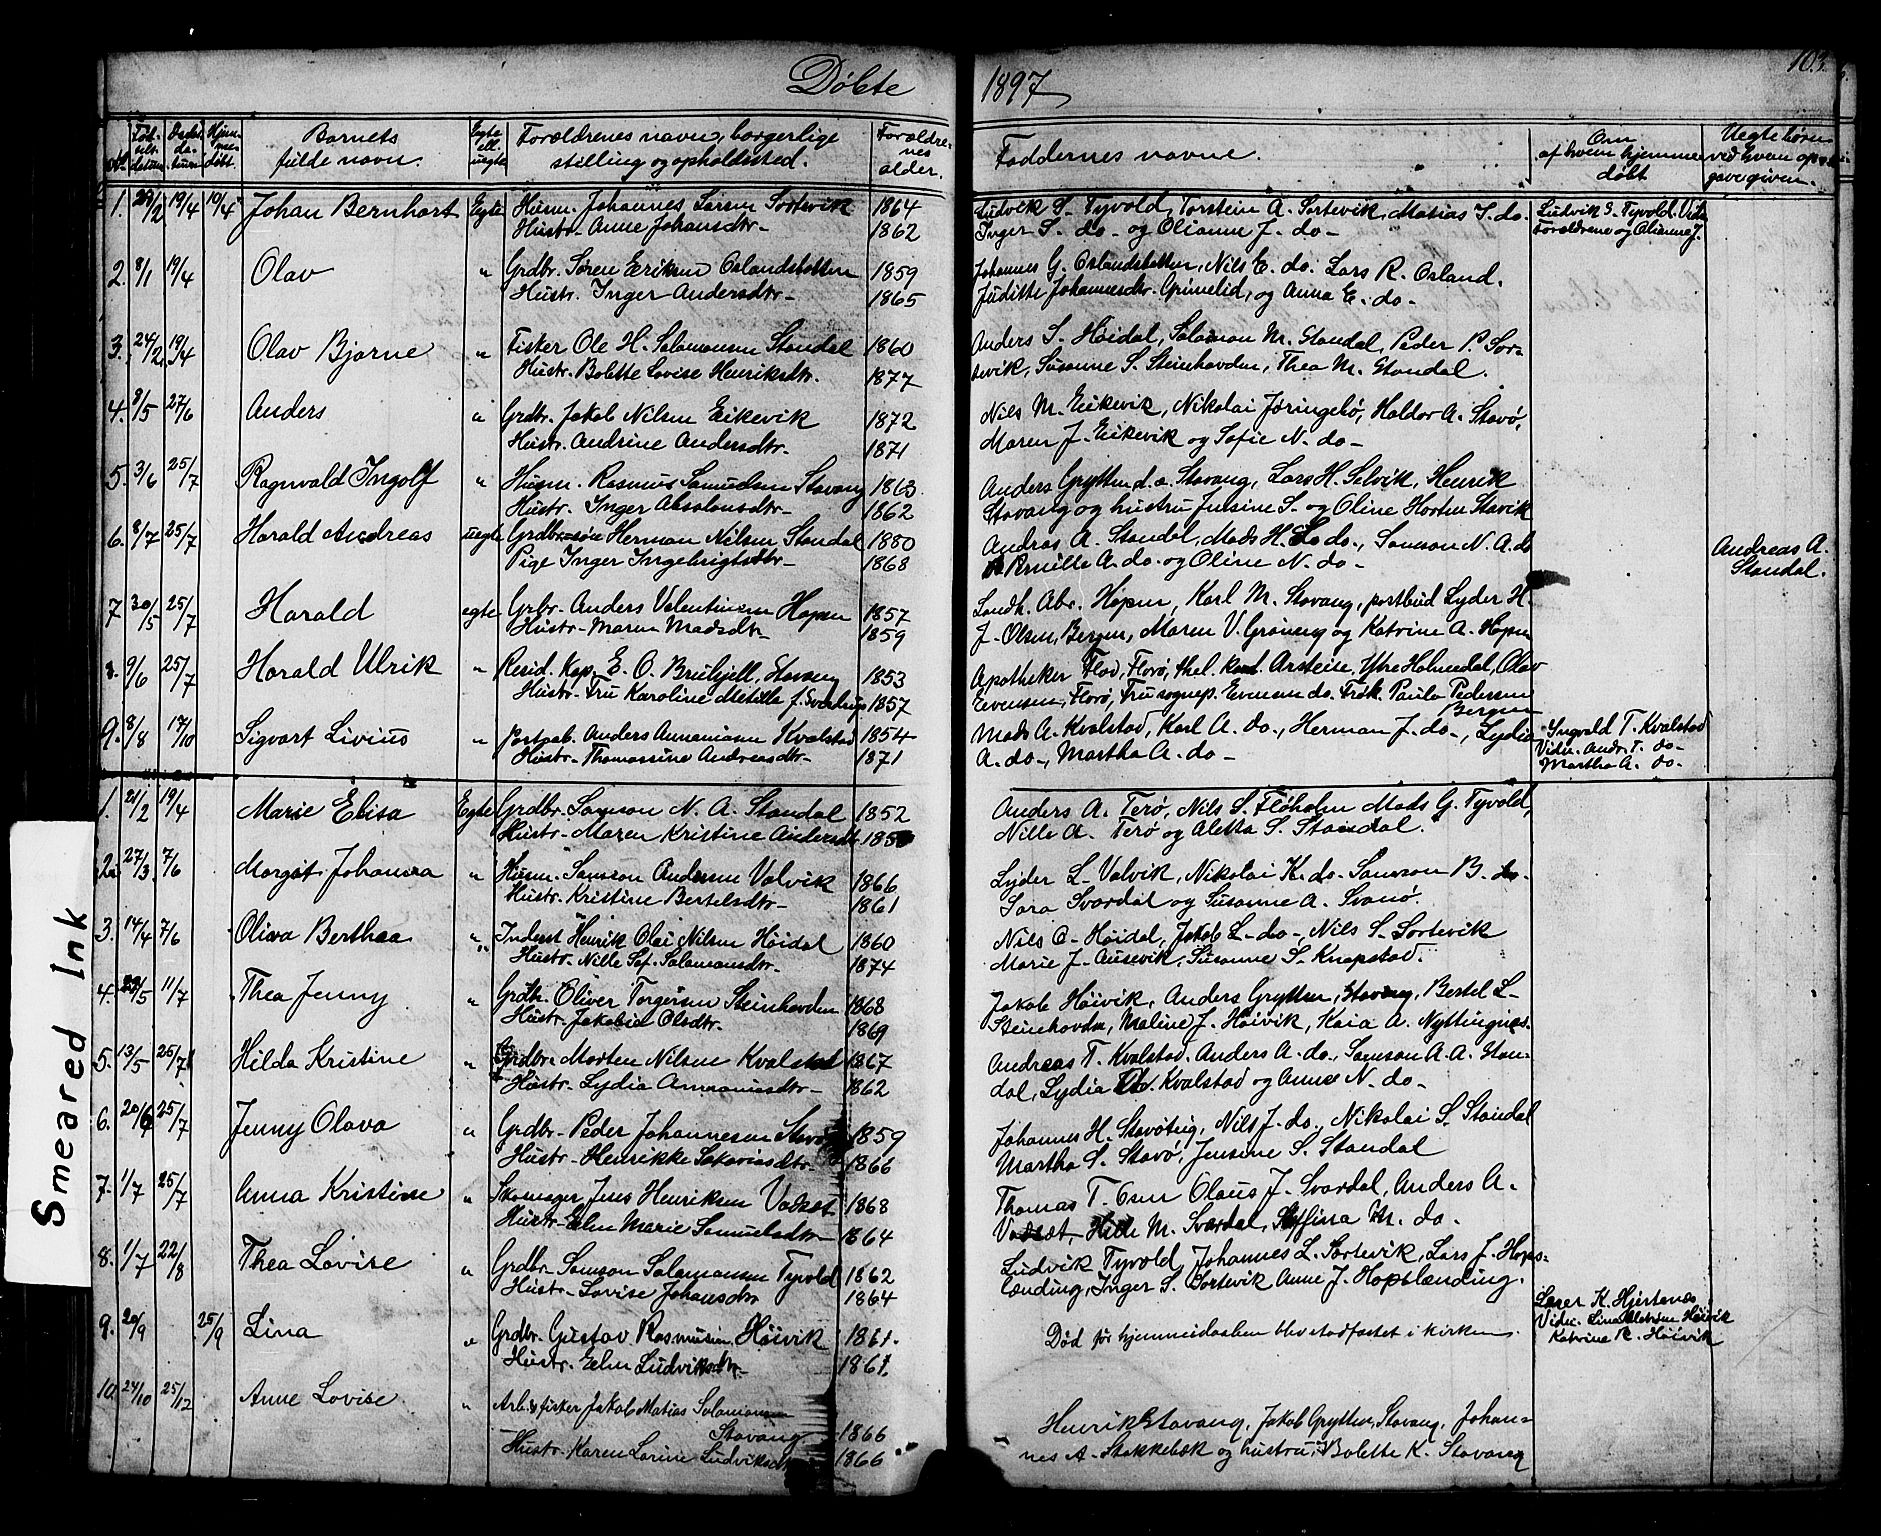 Døbte
1897
103.
№ Fødselsdatum Daabsdatum Hjemmedøbt. Barnets fulde navn. Egte ell. uegte Forældrenes navn, borgerlige stilling og opholdssted. Forældrenes alder. Faddernes navne. Om af hvem hjemmedøbt Uegte børn ved hvem opgave given.
1. 23/2 19/4 10/4 Johan Bernhart Egte Husm. Johannes Larsen Sortevik 1864 Ludvik S. Tyvold, Torstein A. Sortevik, Matias J. do. Ludvik S. Tyvold. Vidn.
Hustr. Anne Johansdtr. 1862 Inger S. do- og Olianne J. do- Forældrene og Olianne J.
2. 8/1 19/4 Olav " Grdbr. Søren Eriksen Oslandsbotten 1859 Johannes G. Oslandsbotten, Nils E. do. Lars R. Osland.
Hustr. Inger Andersdtr- 1865 Juditte Johannesdtr. Grimelid, og Anna E. do-
3. 24/2 19/4 Olav Bjarne " Fisker Ole H. Salamonsen Standal 1860 Anders S. Høidal, Salamon M. Standal, Peder P. Sor-
Hustr. Bolette Lovise Henriksdtr. 1877 tevik, Susanne S. Steinhovden, Thea M. Standal.
4. 8/5 27/6 Anders " Grdbr. Jakob Nilsen Eikevik 1872 Nils M. Eikevik, Nikolai Jøringebø, Haldor A. Stavø,
Hustr. Andrine Andersdtr. 1871 Maren J. Eikevik og Sofie N. do-
5. 3/6 25/7 Ragnvald Ingolf " Husm. Rasmus Samuelsen Stavang 1863 Anders Grytten d.a. Stavang, Lars H. Selvik, Henrik
Hustr. Inger Absalonsdtr- 1862 Stavang og hustru Jensine S. og Oline Horten Stavik
6. 8/7 25/7 Harald Andreas uegte Grdbr.søn Herman Nilsen Standal 1880 Andras A. Standal, Mads H. S. do., Samson N. A. do
Pige Inger Ingebrigtsdtr- 1868 Pernille A. do. og Oline N. do- Andreas A. Standal.
7 30/5 25/7 Harald egte Grbr. Anders Valentinsen Hopen 1857 Landh. Abr. Hopen, Karl M. Stavang, postbud Lyder H.
Hustr. Maren Madsdtr- 1859 J. Olsen, Bergen, Maren V. Grøneng og Katrine A. Hopen
8. 9/6 25/7 Harald Ulrik " Resid. Kap. E. O. Bruhjell, Stavang 1853 Apotheker Flod, Florø, thel. kand. Arsteise, Ytre Holmedal, Olav
Hustr. Fru Karoline Metilla f. Sverdrup 1857 Evensen, Florø, Fru sognep. Evensen do. Frøk. Paula Pedersen
Bergen
9. 8/8 17/10 Sigvart Livius " Postaab. Anders Ananiasen Kvalstad 1854 Mads A. Kvalstad, Karl A. do., Herman J. do-, Lydia Ingvald T. Kvalstad
Hustr. Thomassine Andreasdtr- 1871 A. do-, Martha A. do- Vidn. Andr. T. do-
Martha A. do-
1. 21/2 19/4 Marie Elisa Egte Grdbr. Samson N. A. Standal 1852 Anders A. Terø, Nils S. Fløholm Mads G. Tyvold,
Hustr. Maren Kristine Andersdtr. Nille A. Terø og Aletta S. Standal.
2. 27/3 7/6 Margit Johanna " Husm. Samson Andersen Valvik 1866 Lyder L. Valvik, Nikolai K. do. Samson B. do-
Hustr. Kristine Bertelsdtr- 1861 Sara Svardal og Susanne A. Svanø.
3. 14/4 7/6 Oliva Berthea " Inderst Henrik Olai Nilsen Høidal 1860 Nils O. Høidal, Jakob L. do-, Nils S. Sortevik
Hustr. Nille Sof. Salamonsdtr. 1874 Marie J. Ausevik, Susanne S. Knapstad.
4. 29/5 11/7 Thea Jenny " Grdbr. Oliver Torgersen Steinhovden 1868 Jakob Høivik, Anders Grytten, Stavang, Bertel L.
Hustr. Jakobia Olsdtr. 1869 Steinhovden, Maline J. Høivik, Kaia A. Nyttingnes.
5. 13/5 25/7 Hilda Kristine " Grdbr. Morten Nilsen Kvalstad 1867 Andreas T. Kvalstad. Anders A. do., Samson A. A. Stan-
Hustr. Lydia Ananiasdtr- 1862 dal, Lydia Th. Kvalstad og Anne N. do-
6. 20/6 25/7 Jenny Olava " Grdbr. Peder Johannesen Stavø 1859 Johannes H. Stavøteig, Nils J. do., Nikolai S. Standal
Hustr. Henrikke Sakariasdtr. 1866 Martha S. Stavø, Jensine S. Standal
7. 1/7 25/7 Anna Kristine " Skomager Jens Henriksen Vadset 1868 Thomas T. Osen Olaus J. Svardal, Anders A.
Hustr. Elen Marie Samuelsdtr- 1864 Vadset, Hille M. Svardal, Steffina M. do.
8. 1/7 22/8 Thea Lovise " Grdbr. Samson Salamonsen Tyvold 1862 Ludvik Tyvold, Johannes L. Sortevik, Lars J. Hops-
Hustr. Lovise Johansdtr 1864 lænding, Inger S. Sortevik Anne J. Hopslænding.
9. 20/9 25/9 Lina " Grdbr. Gustav Rasmusen Høivik 1861. Død før hjemmedaaben blev stadfæstet i kirken. Lærer K. Hjertenæs
Hustr. Elen Ludviksdtr. 1861. Vidn. Lina Høivik
Katrine R. Høivik
10. 24/10 25/12 Anne Lovise " Arb. & fisker Jakob Matias Salamonsen
Stavang 1866 Henrik Stavang, Jakob Grytten, Stavang, Johan-
Hustr. Karen Larine Ludviksdtr 1866 nes A. Stokkebæk og hustru, Bolette K. Stavang
Smeared Ink